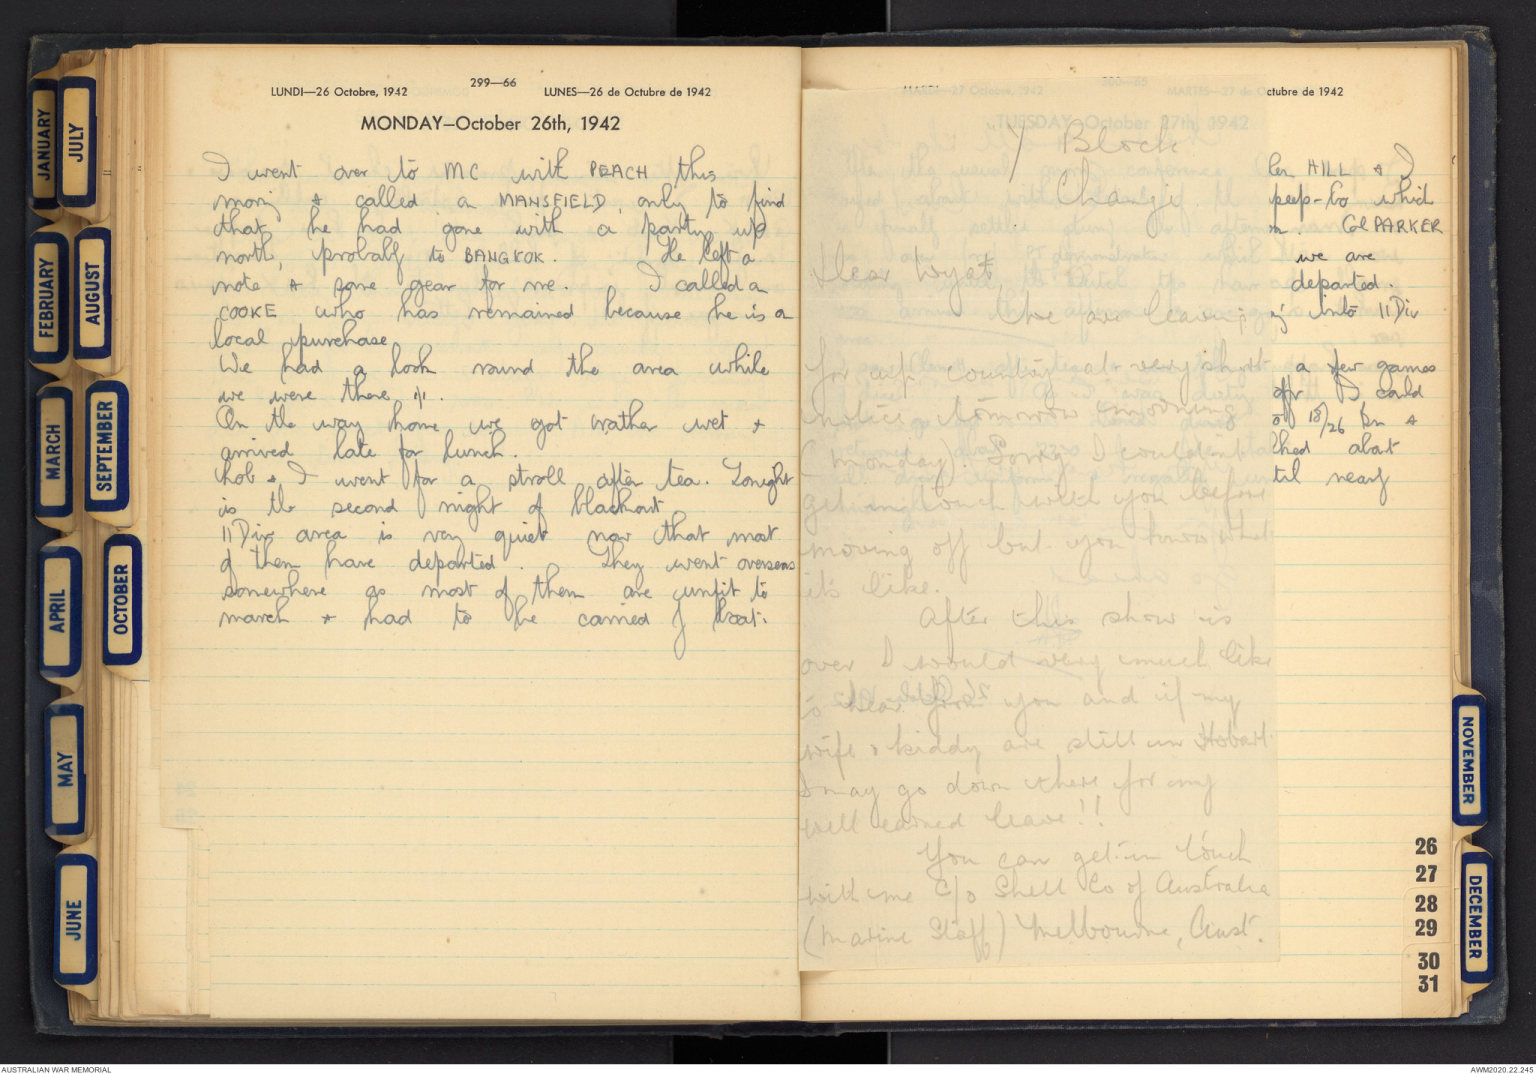 JANUARY
JULY
FEBRUARY
AUGUST
MARCH
SEPTEMBER
APRIL
OCTOBER
MAY
JUNE
299—66
LUNDI—26 Octobre, 1942
LUNES—26 de Octubre de 1942
MONDAY—October 26th, 1942
I went over to MC with PEACH this
& called on MANSFIELD, only to find
that he had gone with a party up
north, probably to BANGKOK. He left a
note & some gear for me. I called on
COOKE who has remained because he is on
local purchase
We had a look round the area while
we were there
On the way home we got rather wet &
arrived late for lunch.
& I went for a stroll after tea. Tonight
is the second night of blackout
11 Div area is very quiet now that most
of them have departed. They went overseas
somewhere as most of them are unfit to
march & had to be carried by boat.
300—65
MARDI—27 Octobre, 1942
MARTES—27 de Octubre de 1942
TUESDAY—October 27th, 1942
"Y Block
Changi.
Dear Wyatt,
We are leaving
for up country at very short
notice, tomorrow morning
(Monday). Sorry I couldn't
get in touch with you before
moving off but you know what
it's like.
After this show is
over I would very much like
to hear from you and if my
wife & kiddy are still in Hobart
I may go down there for my
well earned leave!!
You can get in touch
with me C/o Shell Co of Australia
(Marine Staff) Melbourne, Aust.
HILL & I
peep-bo which
Col PARKER
we are
departed.
into 11 Div
a few games
I could
of 18/26 Bn &
about
nearly
26
27
28
29
30
31
NOVEMBER
DECEMBER
AUSTRALIAN WAR MEMORIAL
AWM2020.22.245